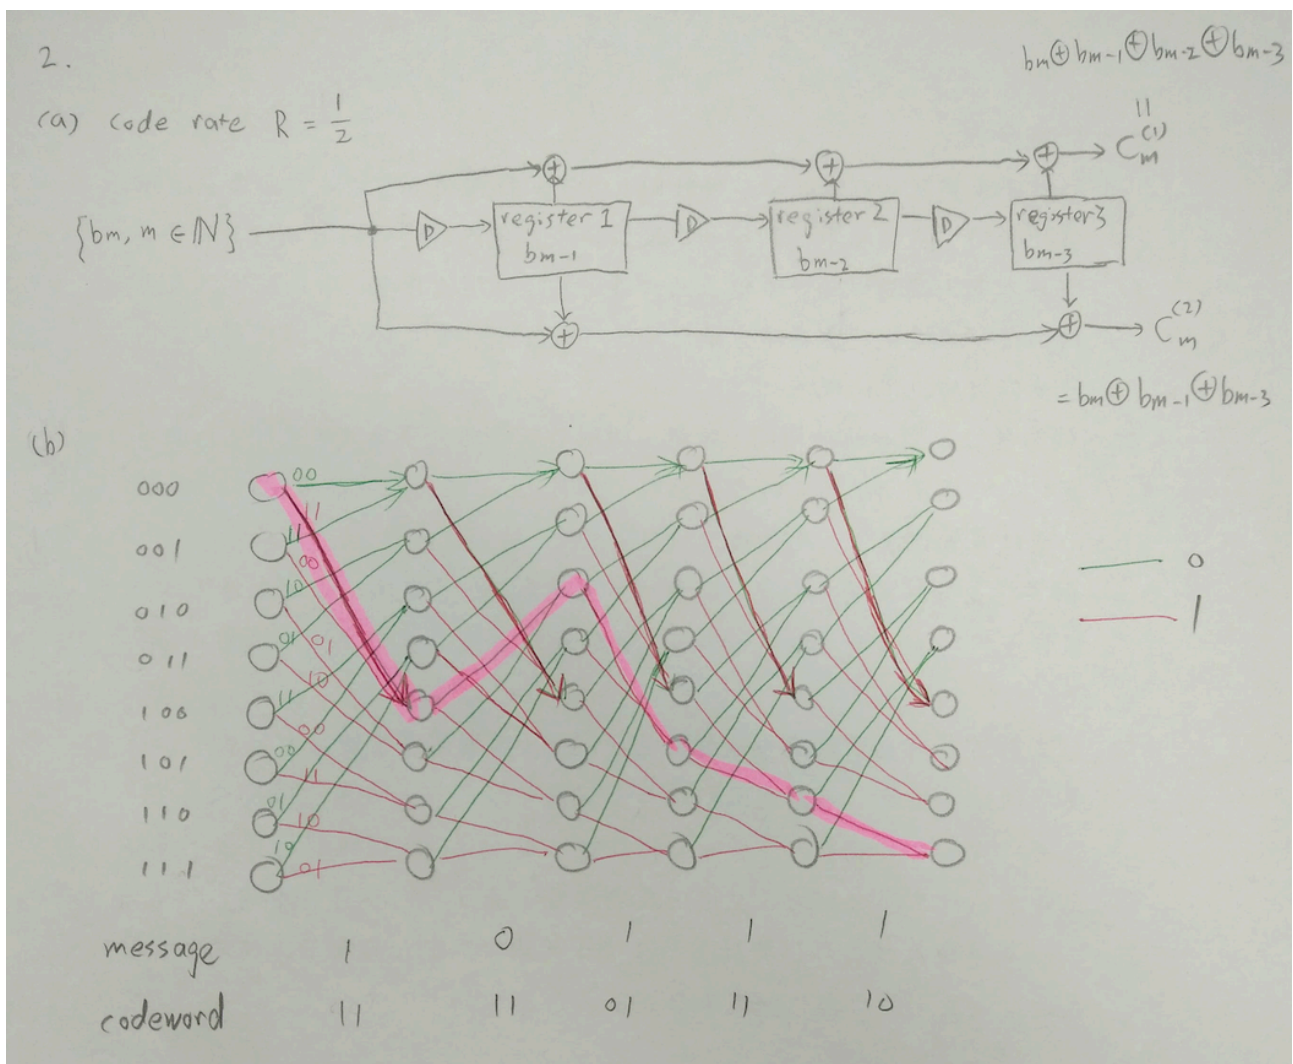 2.
bm⊕bm-1⊕bm-2⊕bm-3
(a) code rate R = 1/2
11
Cm(1)
{bm, m∈ℕ}
D register 1 D register 2 D register 3
bm-1 bm-2 bm-3
Cm(2)
= bm⊕bm-1⊕bm-3
(b)
000 00
11
001 11
00
010 10
011 01 01
10
100 11
00
101 00
11
110 01 10
10
111 01
0
1
message 1 0 1 1 1
codeword 11 11 01 11 10